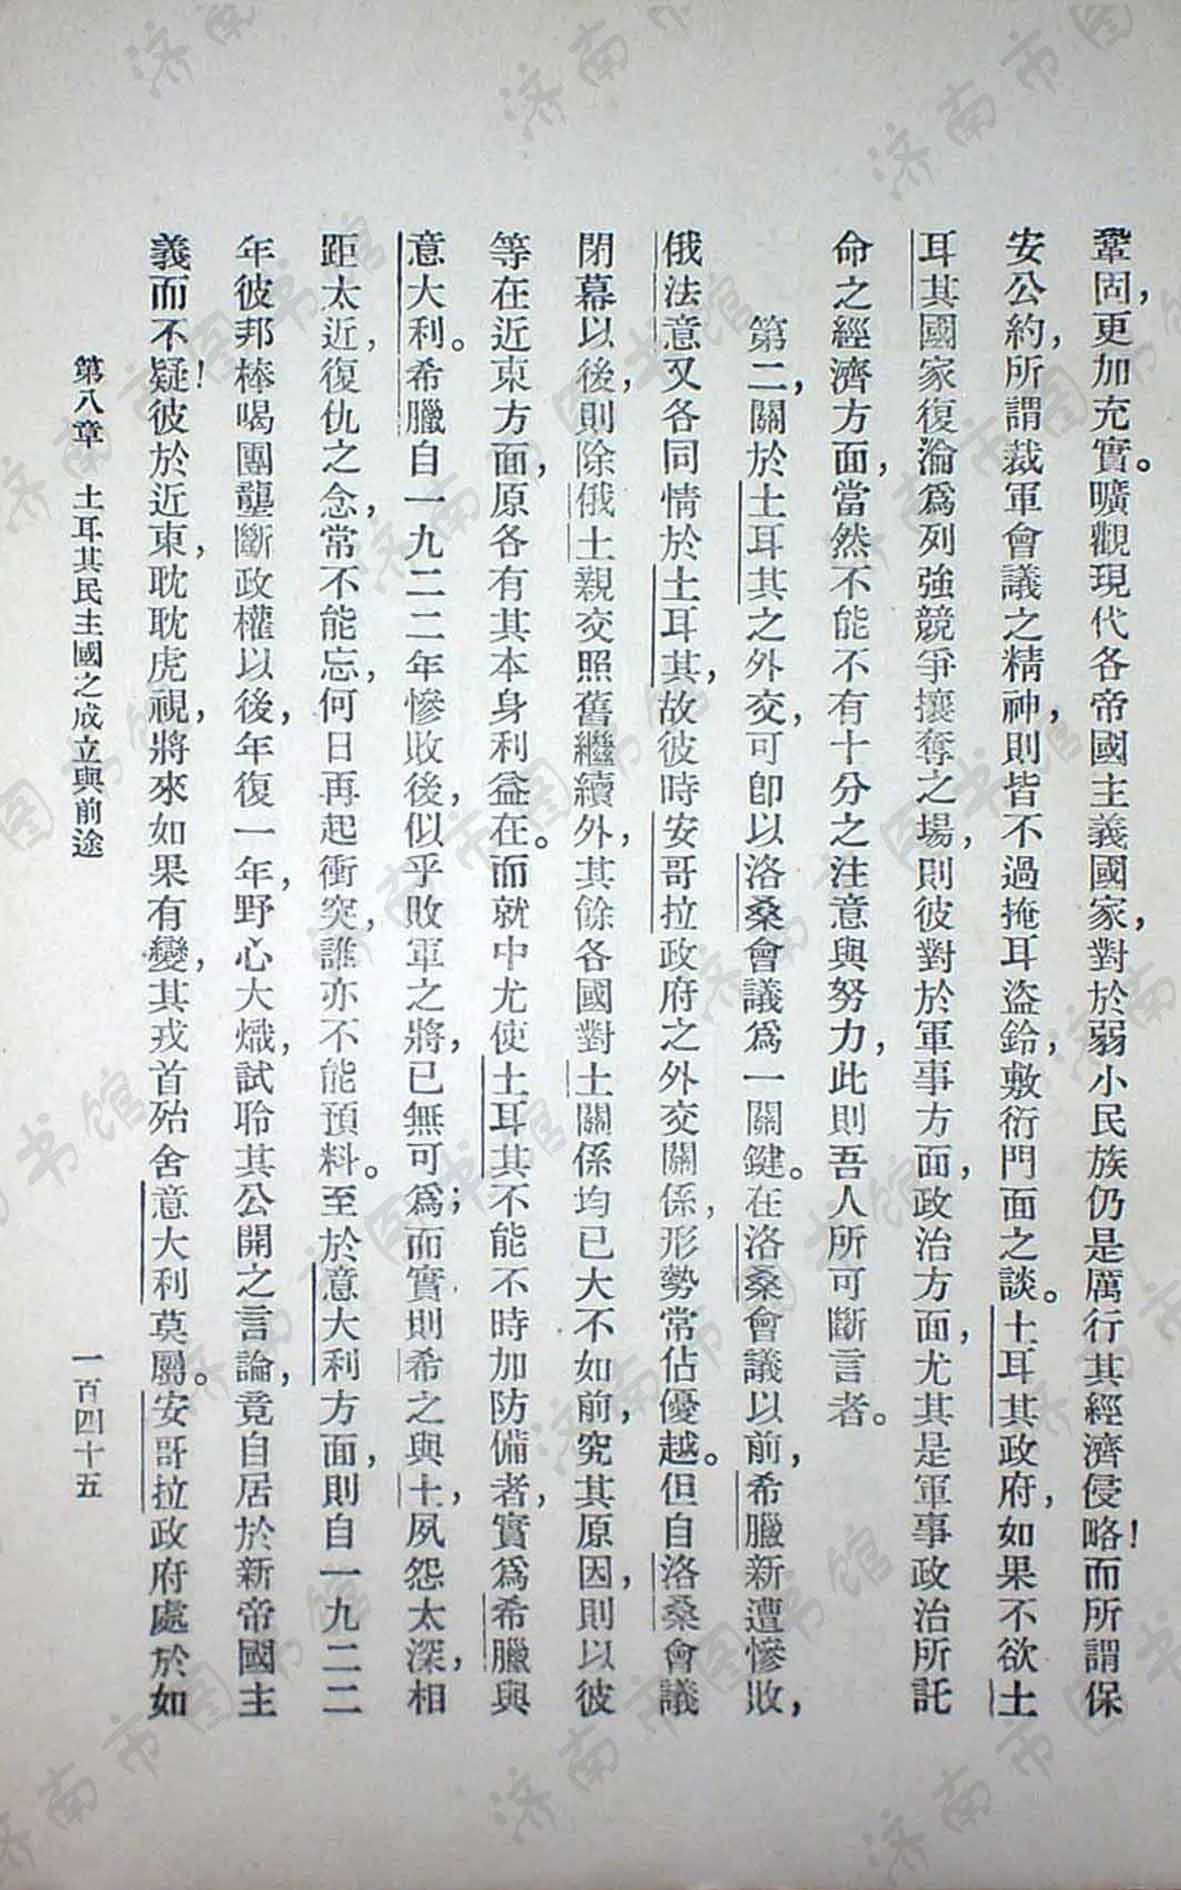 鞏固，更加充實。曠觀現代各帝國主義國家，對於弱小民族仍是厲行其經濟侵略！而所謂保
安公約，所謂裁軍會議之精神，則皆不過掩耳盜鈴，敷衍門面之談。土耳其政府，如果不欲土
耳其國家復淪爲列強競爭攘奪之場，則彼對於軍事方面，政治方面，尤其是軍事政治所託
命之經濟方面，當然不能不有十分之注意與努力，此則吾人所可斷言者。
第二，關於土耳其之外交，可卽以洛桑會議爲一關鍵。在洛桑會議以前，希臘新遭慘敗，
俄法意又各同情於土耳其，故彼時安哥拉政府之外交關係，形勢常佔優越。但自洛桑會議
閉幕以後，則除俄土親交照舊繼續外，其餘各國對土關係均已大不如前，究其原因，則以彼
等在近東方面，原各有其本身利益在。而就中尤使土耳其不能不時加防備者，實爲希臘與
意大利。希臘自一九二二年慘敗後，似乎敗軍之將，已無可爲；而實則希之與土，夙怨太深，相
距太近，復仇之念，常不能忘，何日再起衝突，誰亦不能預料。至於意大利方面，則自一九二二
年彼邦棒喝團壟斷政權以後，年復一年，野心大熾，試聆其公開之言論，竟自居於新帝國主
義而不疑！彼於近東，耽耽虎視，將來如果有變，其戎首殆舍意大利莫屬。安哥拉政府處於如
第八章　土耳其民主國之成立與前途
一百四十五
济南市图书馆